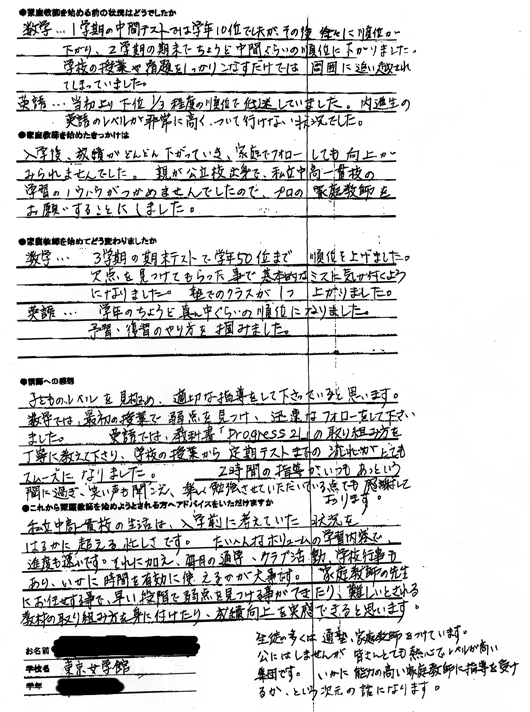 ●家庭教師を始める前の状況はどうでしたか
数学… 1学期の中間テストでは学年10位でしたが、その後 徐々に順位が
下がり、2学期の期末でちょうど中間ぐらいの順位に下がりました。
学校の授業や宿題をしっかりこなすだけでは 周囲に追い越され
てしまっていました。
英語… 当初より下位1/3程度の順位で低迷していました。内進生の
英語のレベルが非常に高く、ついて行けない状況でした。
●家庭教師を始めたきっかけは
入学後、成績がどんどん下がっていき、家庭でフォローしても向上が
みられませんでした。親が公立校出身で、私立中高一貫校の
学習のノウハウがつかめませんでしたので、プロの家庭教師を
お願いすることにしました。
●家庭教師を始めてどう変わりましたか
数学… 3学期の期末テストで学年50位まで 順位を上げました。
欠点を見つけてもらった事で基本的なミスに気が付くよう
になりました。塾でのクラスが1つ 上がりました。
英語… 学年のちょうど真ん中ぐらいの順位になりました。
予習・復習のやり方を掴みました。
●講師への感想
子どものレベルを見極め、適切な指導をして下さっていると思います。
数学では、最初の授業で弱点を見つけ、迅速なフォローをして下さい
ました。 英語では、教科書「Progress 21」の取り組み方を
丁寧に教えて下り、学校の授業から定期テストまでの流れがとても
スムーズになりました。 2時間の指導がいつもあっという
間に過ぎ、笑い声も聞こえ、楽しく勉強させていただいている点でも感謝して
おります。
●これから家庭教師を始めようとされる方へアドバイスをいただけますか
私立中高一貫校の生活は、入学前に考えていた状況を
はるかに超える忙しさです。たいへんなボリュームの学習内容で、
進度も速いです。それに加え、毎日の通学、クラブ活動、学校行事も
あり、いかに時間を有効に使えるかが大事です。家庭教師の先生
にお任せする事で、早い段階で弱点を見つける事ができたり、難しいとされる
教材の取り組み方を身に付けたり、成績向上を実現できると思います。
お名前
学校名 東京女学館
学年
生徒の多くは通塾、家庭教師をつけています。
公にはしませんが皆さんとても熱心でレベルが高い
集団です。いかに能力の高い家庭教師に指導を受け
るか、という次元の話になります。